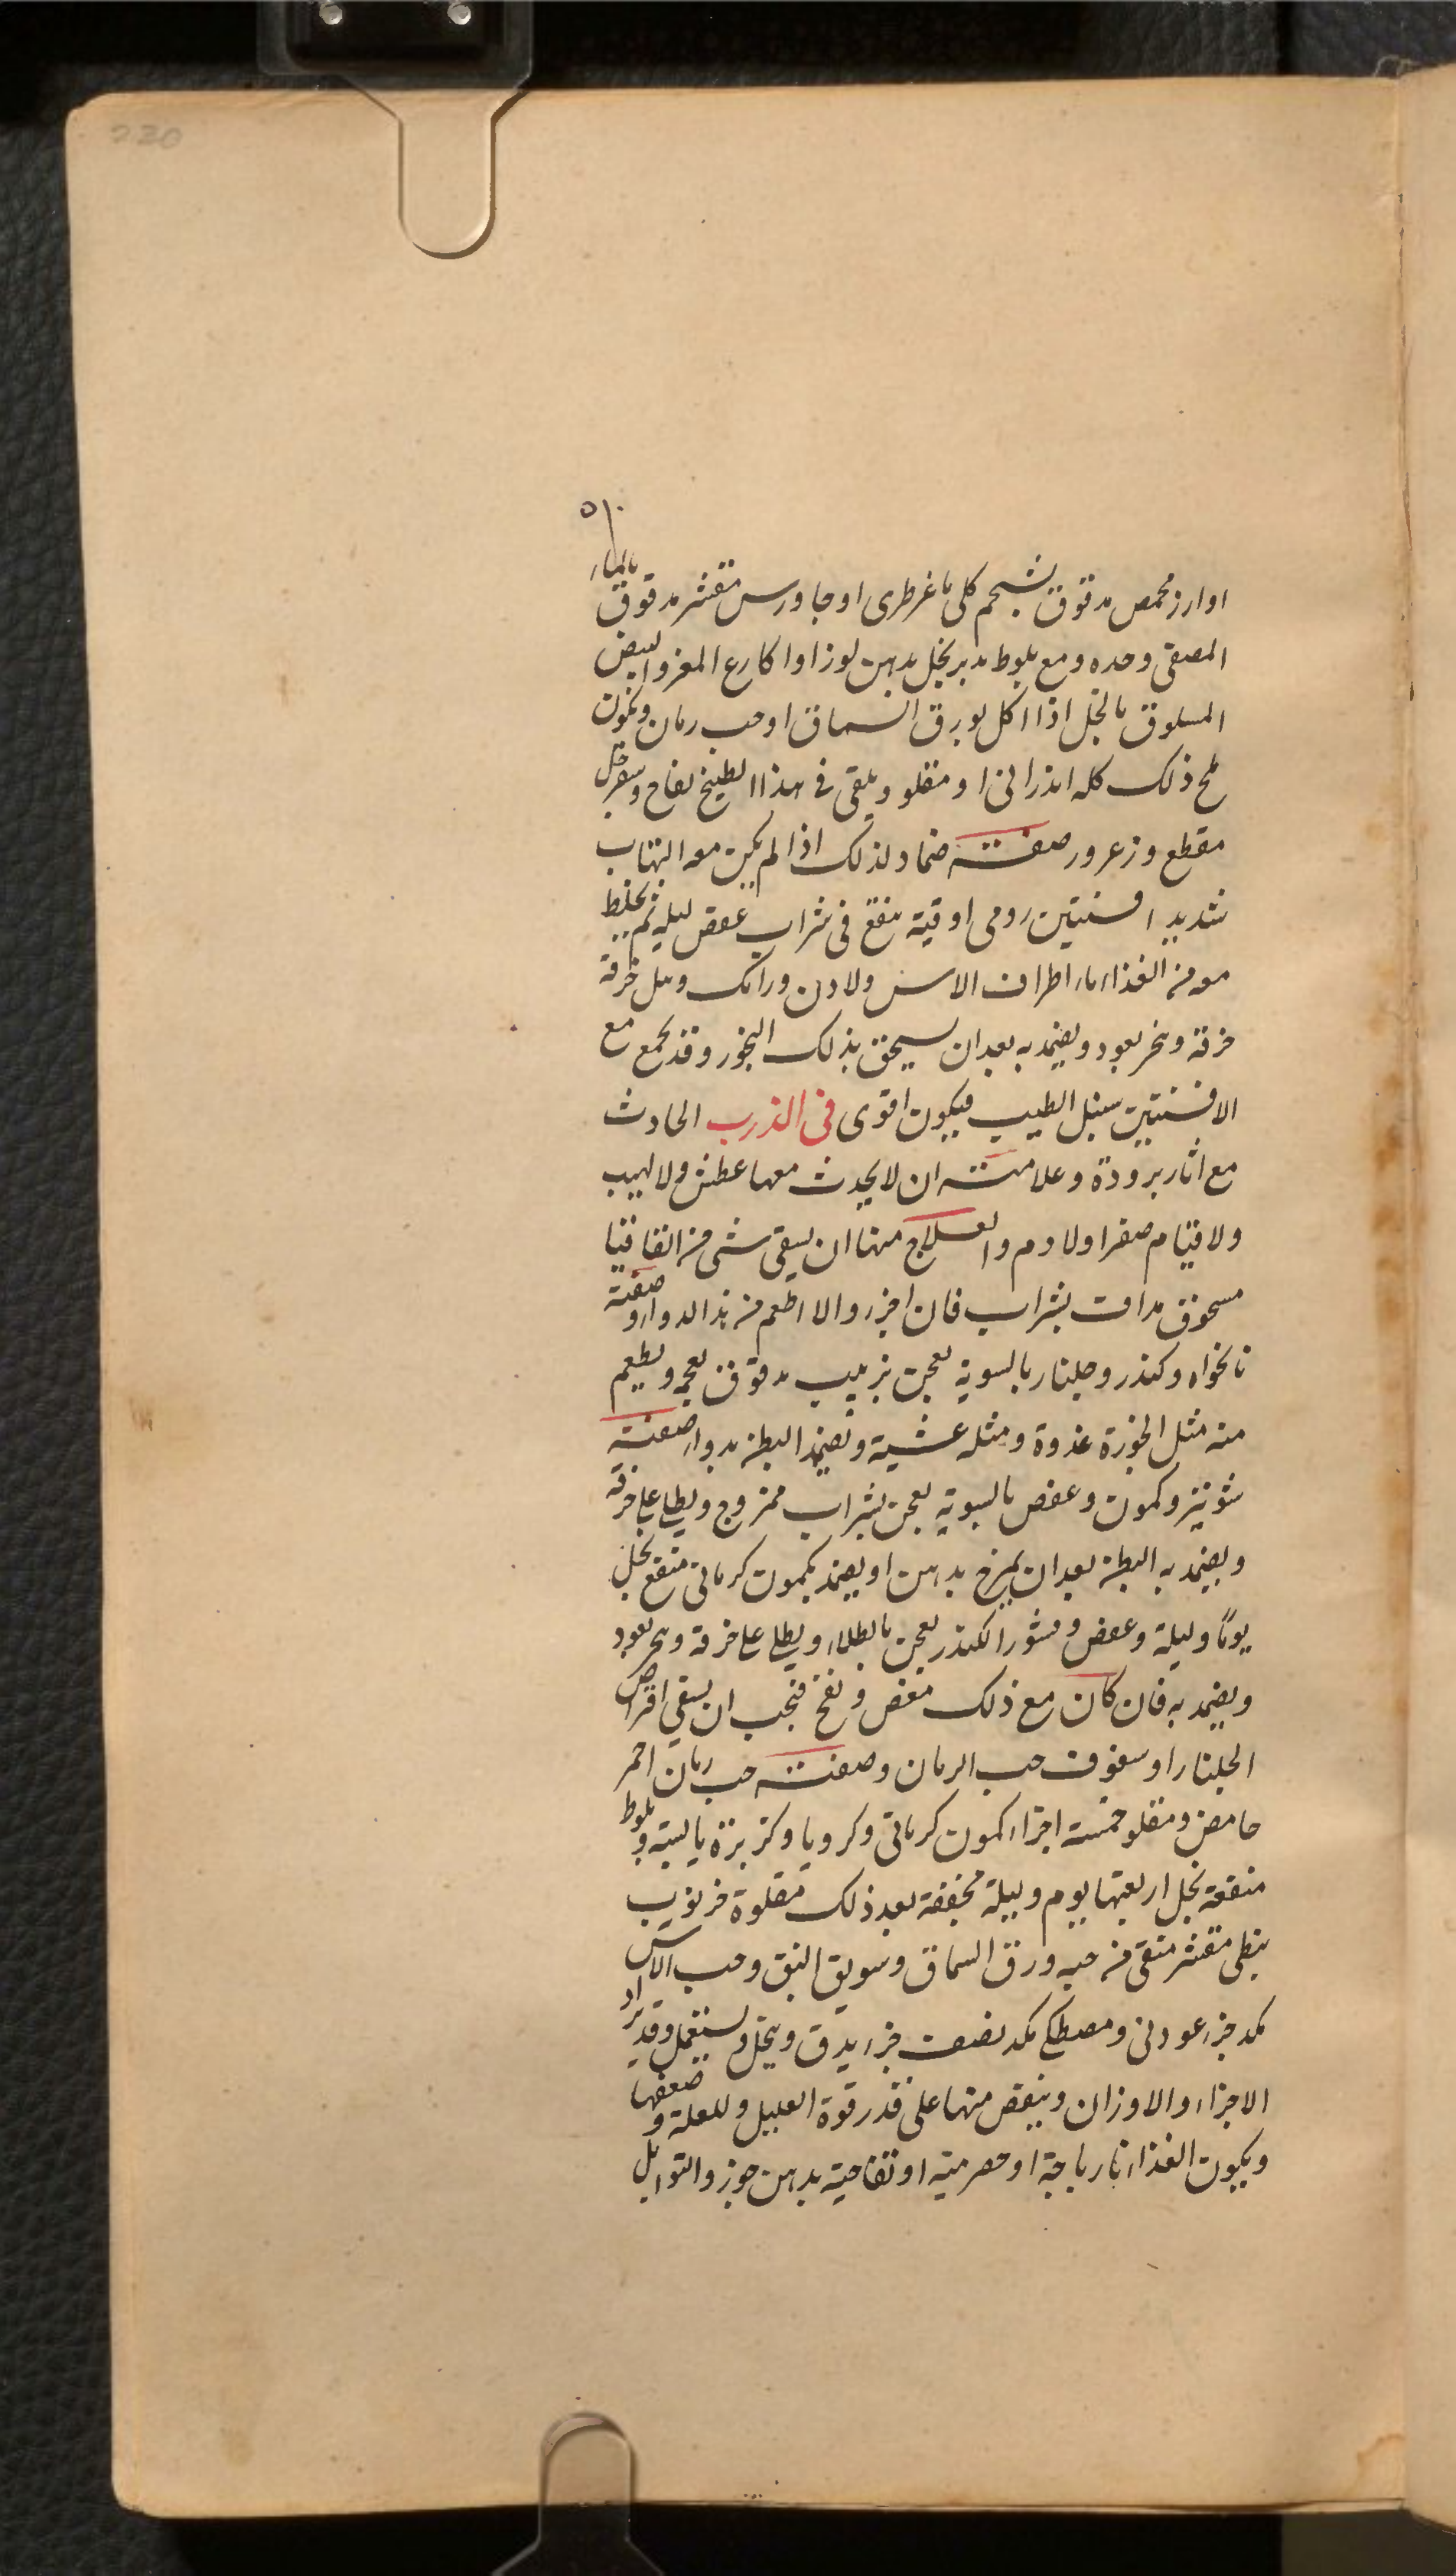 230
٥١٠
او ارز محمص مدقوق بشحم كلى ماعز طرى او جاورس مقشر مدقوق بالماء
المصفى وحده ومع بلوط مدبر بخل بدهن لوز او اكارع المعز والبيض
المسلوق بالخل اذا اكل بورق السماق او حب رمان ويكون
ملح ذلك كله اندرانى او مقلو ويلقى فى هذا الطبيخ تفاح وسفرجل
مقطع وزعرور صفته ضماد لذلك اذا لم يكن معه التهاب
شديد افسنتين رومى اوقية ينقع فى شراب عفص ليله ثم يخلط
معه من الغذاء ماء اطراف الاس ولادن ورامك ويبل خرقة
خرقة وبخر بعود ويضمد به بعد ان يسحق بذلك البخور وقد يجمع مع
الافسنتين سنبل الطيب فيكون اقوى فى الذرب الحادث
مع اثار برودة وعلامته ان لا يحدث معها عطش ولا لهيب
ولا قيام صفرا ولا دم والعلاج منها ان يسقى شى من القاقيا
مسحوق مداف بشراب فان اجزء والا اطعم من هذا الدواء وصفته
نانخواه وكندر وجلنار بالسوية يعجن بزبيب مدقوق بعجمه ويطعم
منه مثل الجوزة غدوة ومثله عشية وتضمد البطن بدواء صفته
شونيز وكمون وعفص بالسوية يعجن بشراب ممزوج ويطلى على خرقة
ويضمد به البطن بعد ان يمرخ بدهن او يضمد بكمون كرمانى منقع بخل
يوماً وليلة وعفص وقشور الكندر يعجن بالطلاء ويطلى على خرقة وبخر بعود
ويضمد به فان كان مع ذلك مغص ونفخ فيجب ان يسقى اقراص
الجلنار او سفوف حب الرمان وصفته حب رمان احمر
حامض ومقلو خمسة اجزاء كمون كرمانى وكرويا وكزبزة يابسة وبلوط
منقعة بخل اربعتها يوم وليلة مجففة بعد ذلك مقلوة خرنوب
نبطى مقشر منقى من حبه ورق السماق وسويق النبق وحب الاس
مكد جزء عود نى ومصطكى مكد نصف جزء يدق وينخل ويستعمل وقد يزاد
الاجزاء والاوزان وينقص منها على قدر قوة العليل وللعلة وضعفها
ويكون الغذاء نارباجة او حصرمية او تفاحية بدهن جوز والتوابل